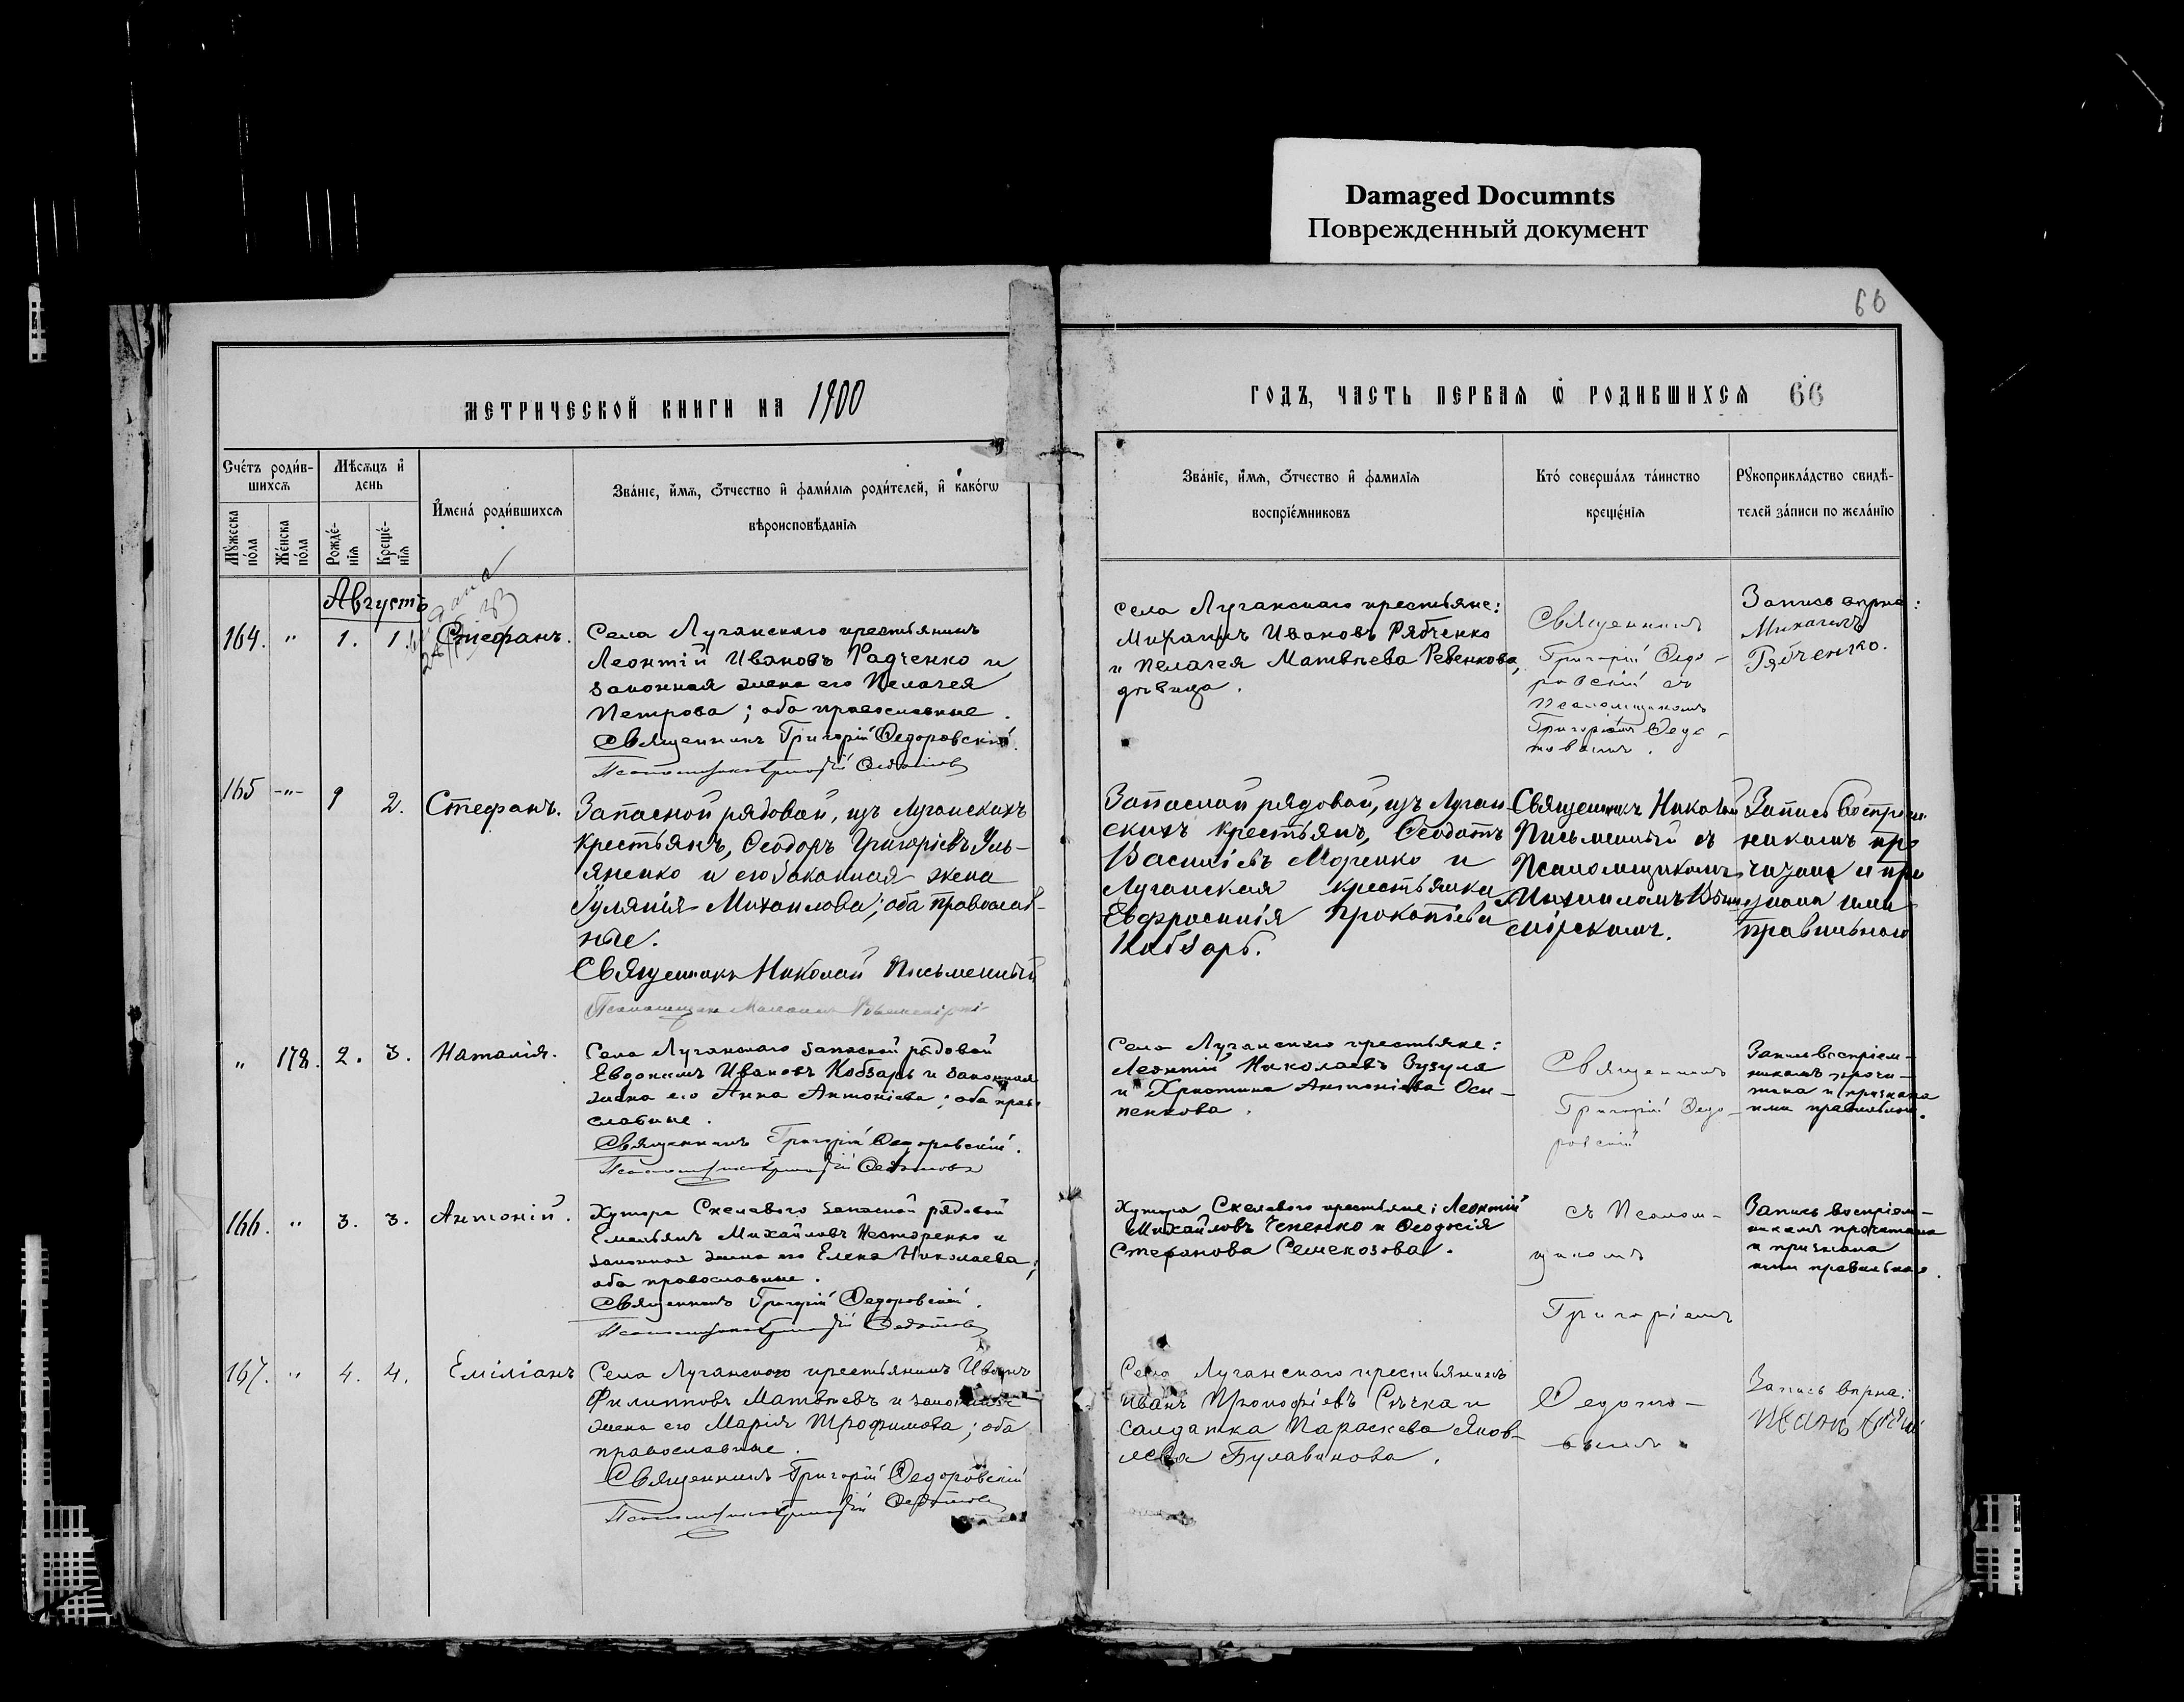 Damaged Documnts
Поврежденный документ
60
МЕТРИЧЕСКОЙ КНИГИ НА 1900
ГОДЪ, ЧАСТЬ ПЕРВАЯ Ѿ РОДИВШИХСЯ 66
Счетъ родив-
шихся
Мѣсяцъ и
день
Мужеска
пола
Женска
пола
Рожде-
нія
Креще-
нія
Имена родившихся
Званіе, имя, отчество и фамилія родителей, и какогѡ
вѣроисповѣданія
Званіе, имя, отчество и фамилія
воспріемниковъ
Кто совершалъ таинство
крещенія
Рукоприкладство свидѣ-
телей записи по желанію
Августъ
164. " 1. 1. Стефанъ.
Села Луганскаго крестьянинъ
Леонтій Ивановъ Радченко и
законная жена его Пелагея
Петрова; оба православные.
Священникъ Григорій Ѳедоровскій.
Псаломщикъ Григорій Ѳедотовъ
Села Луганскаго крестьяне:
Михаилъ Ивановъ Рябченко
и Пелагея Матвѣева Ревенкова,
дѣвица.
Священникъ
Григорій Ѳедо-
ровскій съ
Псаломщикомъ
Григоріемъ Ѳедо-
товымъ.
Запись вѣрна:
Михаилъ
Рябченко.
165 -"- 1 2. Стефанъ.
Запасной рядовой, изъ Луганскихъ
крестьянъ, Ѳеодоръ Григорьевъ Уль-
яненко и его законная жена
Іулянія Михаилова; оба православ-
ные.
Священникъ Николай Письменный
Псаломщикъ
Запасной рядовой, изъ Луган-
скихъ крестьянъ, Ѳеодотъ
Васильевъ Моренко и
Луганская крестьянка
Евфросинія Прокопіева
Кобзарь.
Священникъ Николай
Письменный съ
Псаломщикомъ
Запись воспріем-
никамъ про
читана и при
знана ими
правильною
" 178. 2. 3. Наталія.
Села Луганскаго запасной рядовой
Евдокимъ Ивановъ Кобзарь и законная
жена его Анна Антоніева; оба право-
славные.
Священникъ Григорій Ѳедоровскій.
Псаломщикъ Григорій Ѳедотовъ
Села Луганскаго крестьяне:
Леонтій Николаевъ Зузуля
и Христина Антоніева Оси-
пенкова.
Священникъ
Григорій Ѳедо-
ровскій
Запись воспріем-
никамъ прочи-
тана и признана
ими правильною.
166. " 3. 3. Антоній.
Хутора Скелеваго запасной рядовой
Емельянъ Михайловъ Несторенко и
законная жена его Елена Николаева;
оба православные.
Священникъ Григорій Ѳедоровскій.
Псаломщикъ Григорій Ѳедотовъ
Хутора Скелеваго крестьяне: Леонтій
Михайловъ Чепенко и Ѳеодосія
Стефанова Семекозова.
съ Псалом-
щикомъ
Григоріемъ
Запись воспріем-
никамъ прочитана
и признана
ими правильною.
167. " 4. 4. Емиліанъ
Села Луганскаго крестьянинъ Иванъ
Филипповъ Матвѣевъ и законная
жена его Марія Трофимова; оба
православные.
Священникъ Григорій Ѳедоровскій
Псаломщикъ Григорій Ѳедотовъ
Села Луганскаго крестьянинъ
Иванъ Прокофіевъ Сѣчка и
солдатка Параскева Яков-
лева Булавинова.
Ѳедото-
вымъ.
Запись вѣрна:
Иванъ